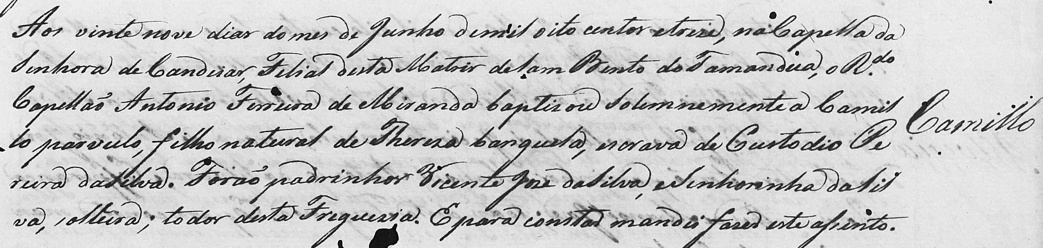 Aos vinte nove dias do mes de Junho de mil oito centos e treze, na Capella da
Senhora de Candeias, Filial desta Matriz de Sam Bento do Tamandua, o R.do
Capellaõ Antonio Ferreira de Miranda baptizou solemnemente a Camil
lo parvulo, filho natural de Thereza banguela, escrava de Custodio Pe
reira da Silva. Foraõ padrinhos Vicente Joze da Silva, e Senhorinha da Sil
va, solteira; todos desta Freguezia. E para constar mandei fazer este assento.
Camillo